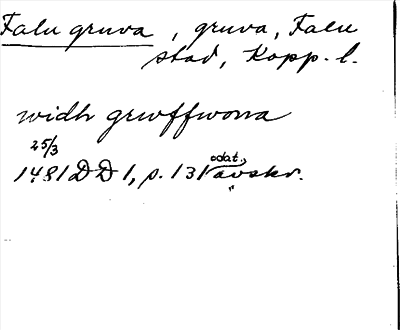 Falu gruva, gruva, Falu
stad, Kopp. l.
widh grwffwona
25/3
1481 DD 1, p. 131 odat., avskr.